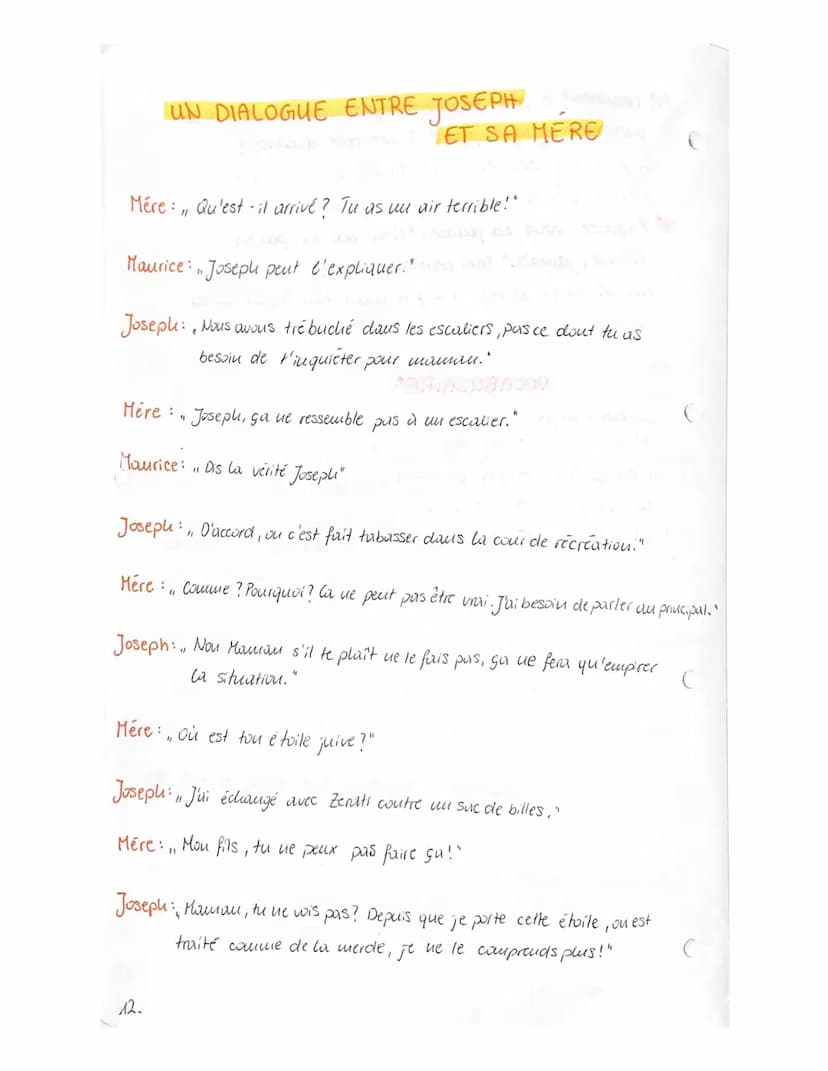 UN DIALOGUE ENTRE JOSEPH
ET SA MÉRE
Mére : „ Qu'est-il arrivé? Tu as un air terrible!"
Maurice : „Joseph peut l'expliquer."
Joseph : „Nous avons trébuché dans les escaliers, pas ce dont tu as
besoin de t'inquiéter pour maman."
Mére : „ Joseph, ça ne ressemble pas à un escalier."
Maurice : „ Dis la vérité Joseph"
Joseph : „ D'accord, on c'est fait tabasser dans la cour de récréation."
Mére : „ Comme ? Pourquoi? Ca ne peut pas être vrai. J'ai besoin de parler au principal."
Joseph : „ Non Maman s'il te plaît ne le fais pas, ça ne fera qu'empirer
la situation."
Mére : „ Où est ton étoile juive ?"
Joseph : „ J'ai échangé avec Zerati contre un sac de billes."
Mére : „ Mon fils, tu ne peux pas faire ça!"
Joseph : „ Maman, tu ne vois pas? Depuis que je porte cette étoile, on est
traité comme de la merde, je ne le comprends plus!"
12.